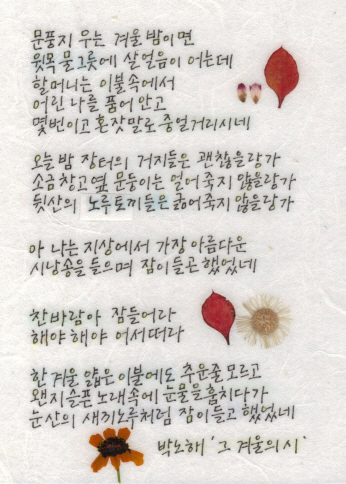 문풍지 우는 겨울 밤이면
윗목 물그릇에 살얼음이 어는데
할머니는 이불속에서
어린 나를 품어 안고
몇번이고 혼잣말로 중얼거리시네
오늘 밤 장터의 거지들은 괜찮을랑가
소금창고옆 문둥이는 얼어죽지 않을랑가
뒷산의 노루토끼들은 굶어죽지 않을랑가
아 나는 지상에서 가장 아름다운
시낭송을 들으며 잠이들곤 했었네
찬바람아 잠들어라
해야 해야 어서떠라
한겨울 얇은 이불에도 추운줄 모르고
왠지슬픈 노래속에 눈물을 훔치다가
눈산의 새끼노루처럼 잠이들고 했었네
박노해 '그 겨울의 시'